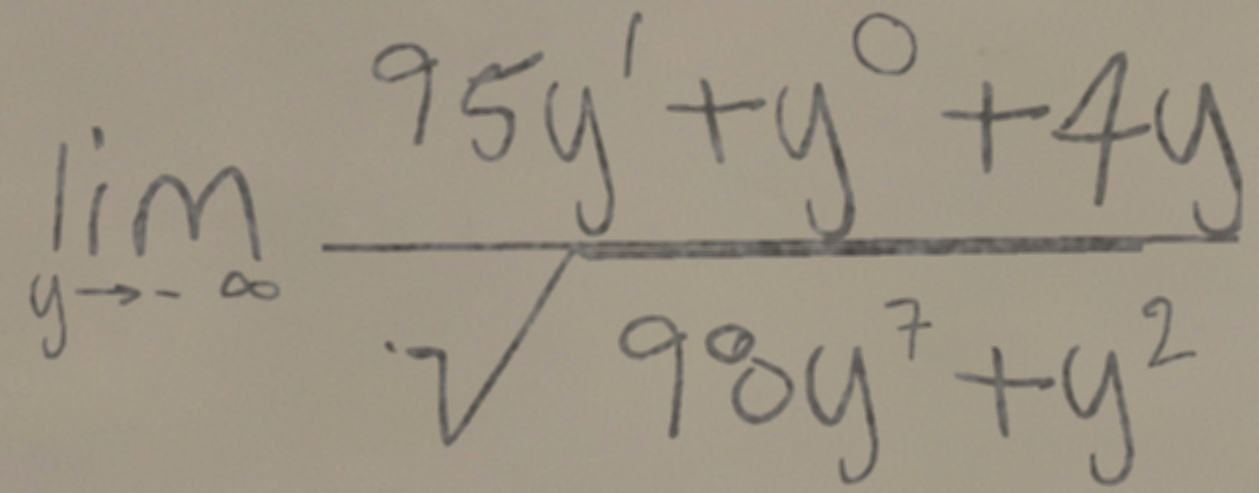 lim y→-∞ (95y^1 + y^0 + 4y) / √(98y^7 + y^2)